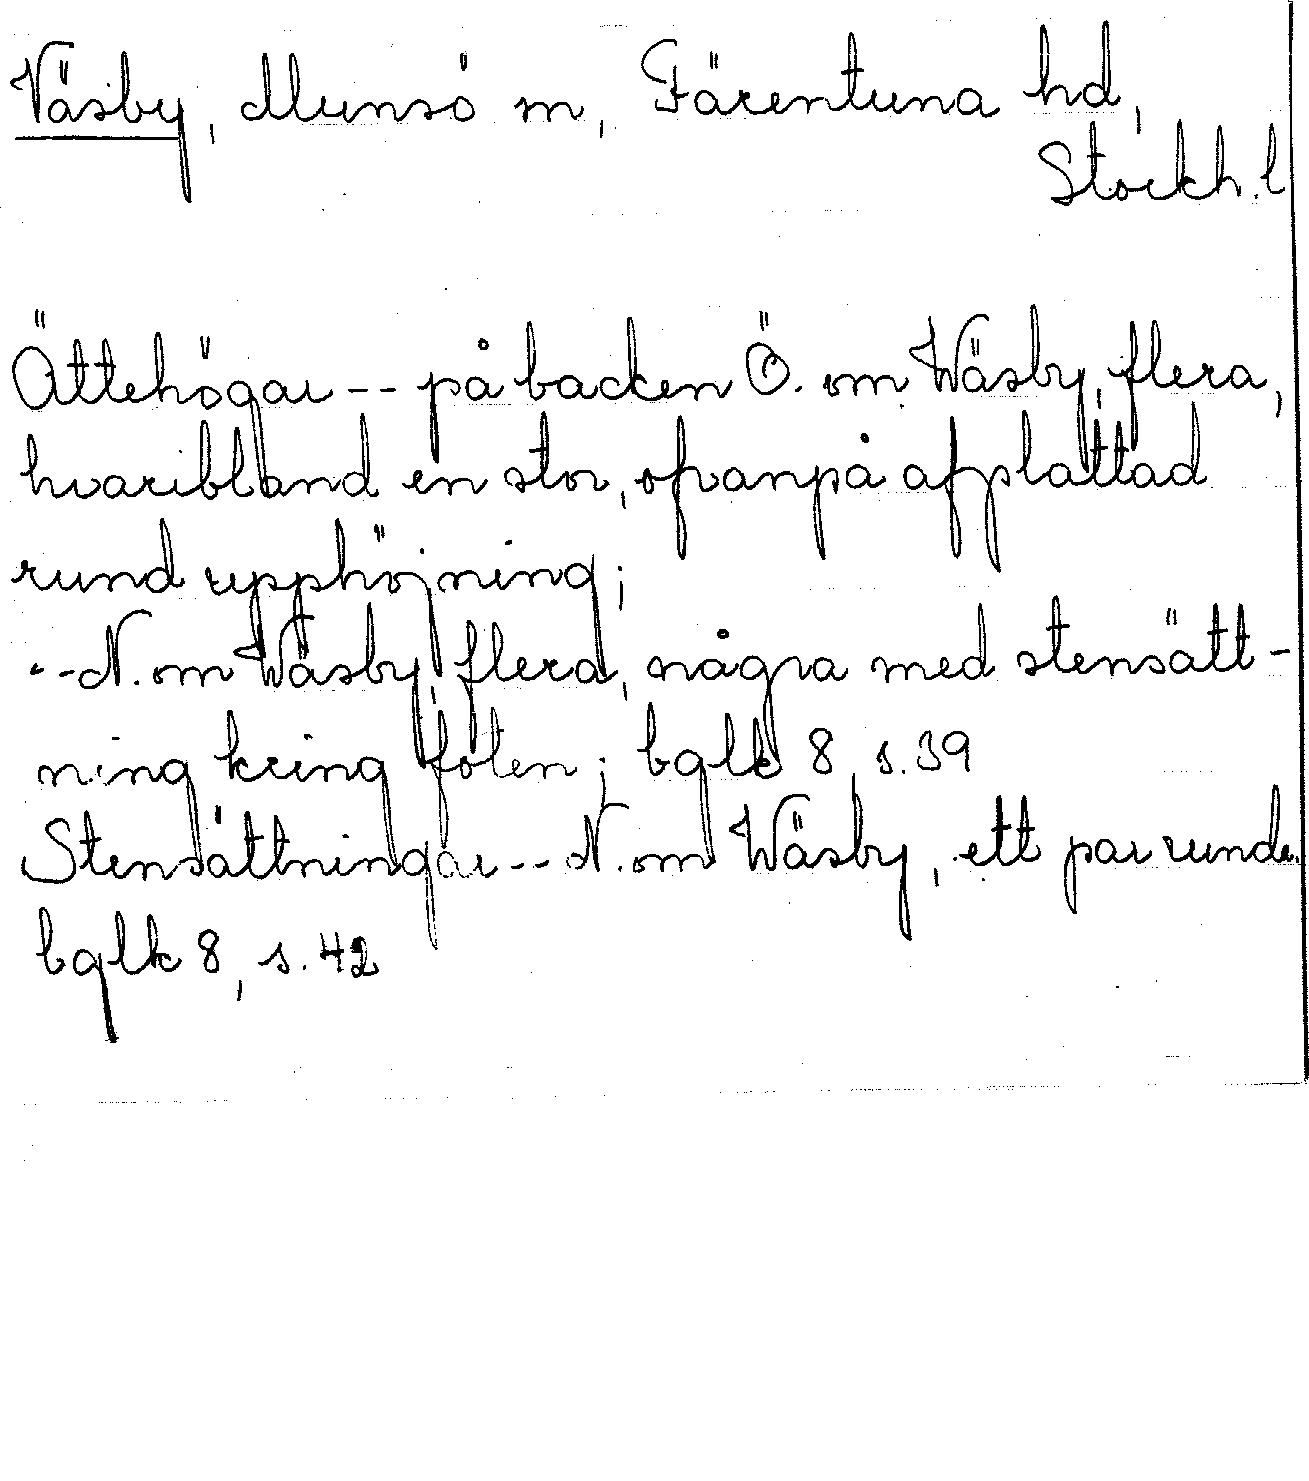 Väsby, Munsö sn, Färentuna hd,
Stockh. l
Ättehögar -- på backen Ö. om Wäsby, flera,
hvaribland en stor, ofvanpå afplattad
rund upphöjning;
-- N. om Wäsby, flera, några med stensätt-
ning kring foten; bglk 8, s. 39
Stensättningar -- N. om Wäsby, ett par runda.
bglk 8, s. 42